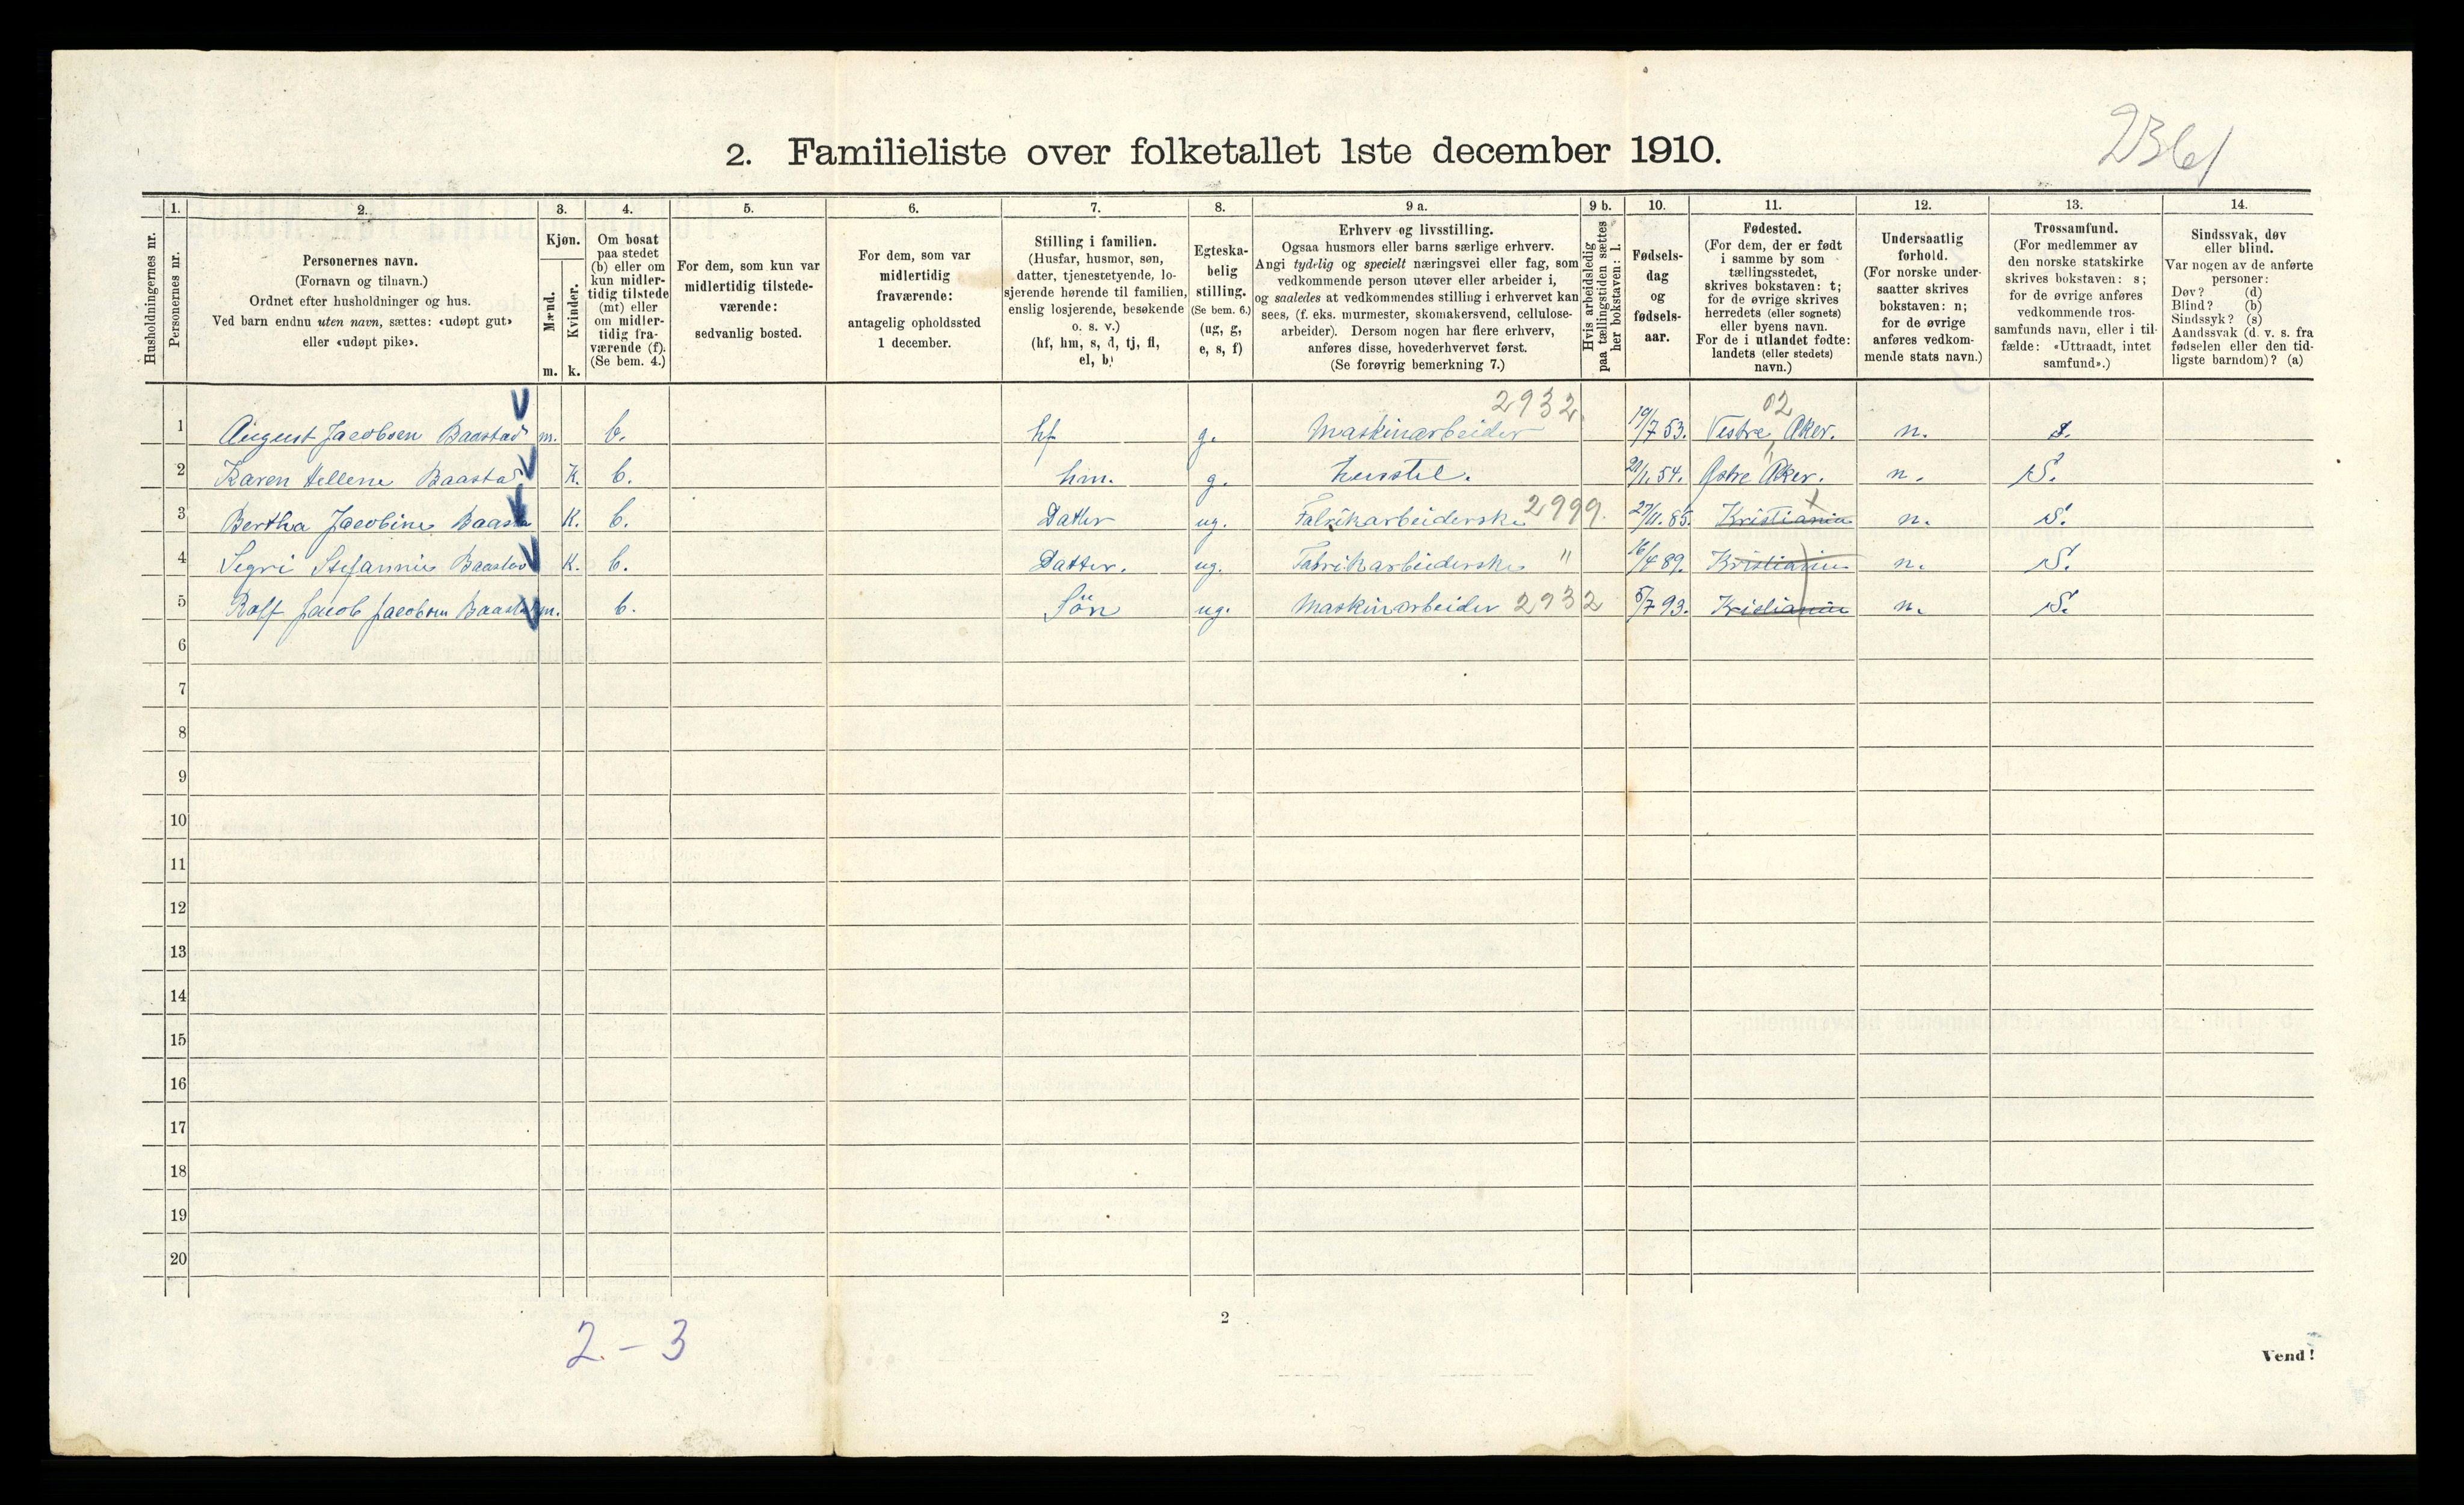 2361
2. Familieliste over folketallet 1ste december 1910.
Husholdningernes nr.
1. Personernes nr.
2. Personernes navn.
(Fornavn og tilnavn.)
Ordnet efter husholdninger og hus.
Ved barn endnu uten navn, sættes: «udøpt gut»
eller «udøpt pike».
3. Kjøn.
Mænd. m.
Kvinder. k.
4. Om bosat
paa stedet
(b) eller om
kun midler-
tidig tilstede
(mt) eller
om midler-
tidig fra-
værende (f).
(Se bem. 4.)
5. For dem, som kun var
midlertidig tilstede-
værende:
sedvanlig bosted.
6. For dem, som var
midlertidig
fraværende:
antagelig opholdssted
1 december.
7. Stilling i familien.
(Husfar, husmor, søn,
datter, tjenestetyende, lo-
sjerende hørende til familien,
enslig losjerende, besøkende
o. s. v.)
(hf, hm, s, d, tj, fl,
el, b)
8. Egteska-
belig
stilling.
(Se bem. 6.)
(ug, g,
e, s, f)
9 a. Erhverv og livsstilling.
Ogsaa husmors eller barns særlige erhverv.
Angi tydelig og specielt næringsvei eller fag, som
vedkommende person utøver eller arbeider i,
og saaledes at vedkommendes stilling i erhvervet kan
sees, (f. eks. murmester, skomakersvend, cellulose-
arbeider). Dersom nogen har flere erhverv,
anføres disse, hovederhvervet først.
(Se forøvrig bemerkning 7.)
9 b. Hvis arbeidsledig
paa tællingstiden sættes
her bokstaven: l.
10. Fødsels-
dag
og
fødsels-
aar.
11. Fødested.
(For dem, der er født
i samme by som
tællingsstedet,
skrives bokstaven: t;
for de øvrige skrives
herredets (eller sognets)
eller byens navn.
For de i utlandet fødte:
landets (eller stedets)
navn.)
12. Undersaatlig
forhold.
(For norske under-
saatter skrives
bokstaven: n;
for de øvrige
anføres vedkom-
mende stats navn.)
13. Trossamfund.
(For medlemmer av
den norske statskirke
skrives bokstaven: s;
for de øvrige anføres
vedkommende tros-
samfunds navn, eller i til-
fælde: «Uttraadt, intet
samfund».)
14. Sindssvak, døv
eller blind.
Var nogen av de anførte
personer:
Døv? (d)
Blind? (b)
Sindssyk? (s)
Aandssvak (d. v. s. fra
fødselen eller den tid-
ligste barndom)? (a)
2932 02
1 August Jacobsen Baastad m. b. hf g. Maskinarbeider 19/7 53. Vestre Aker. n. s.
2 Karen Hellene Baastad K. b. hm. g. husstel. 54. Østre Aker. n. S.
3 Bertha Jacobine Baasta K. b. Datter ug. Fabrikarbeiderske 2999. 27/11. 85. Kristiania n. S.
4 Segri Stefannie Baastad K. b. Datter. ug. Fabrikarbeiderske " 16/4 89. Kristiania n. S.
5 Rolf Jacob Jacobsen Baastad m. b. Sön ug. Maskinarbeider 2932 5/7 93. Kristiania n. S.
6
7
8
9
10
11
12
13
14
15
16
17
18
19
20
2
2 - 3
Vend!